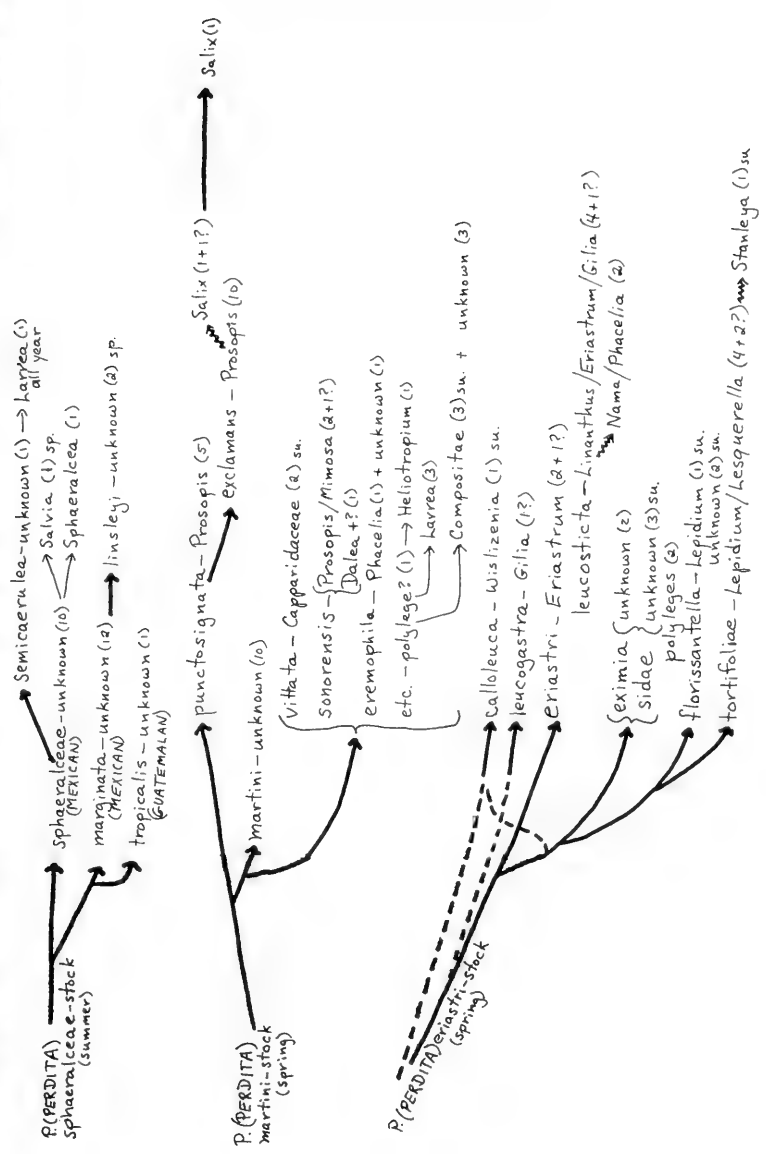 P.(PERDITA)
sphaeralceae-stock
(summer)
Semicaerulea-unknown (1) → Larrea (1)
all year
sphaeralceae-unknown (10)
(MEXICAN)
Salvia (1) sp.
Sphaeralcea (1)
marginata-unknown (12)
(MEXICAN)
linsleyi-unknown (2) sp.
tropicalis-unknown (1)
(GUATEMALAN)
P.(PERDITA)
martini-stock
(spring)
punctosignata-Prosopis (5)
Salix (1+1?)
Salix (1)
exclamans-Prosopis (10)
martini-unknown (10)
vittata-Capparidaceae (2) su.
sonorensis-{Prosopis/Mimosa (2+1?)
{Dalea+? (1)
eremophila-Phacelia (1) + unknown (1)
etc.-polylege? (1) → Heliotropium (1)
Larrea (3)
Compositae (3) su. + unknown (3)
P.(PERDITA) eriastri-stock
(spring)
calloleuca-Wislizenia (1) su.
leucogastra-Gilia (1?)
eriastri-Eriastrum (2+1?)
leucosticta-Linanthus/Eriastrum/Gilia (4+1?)
Nama/Phacelia (2)
{eximia {unknown (2)
{sidae {unknown (3) su.
polyleges (2)
florissantella-Lepidium (1) su.
unknown (2) su.
tortifoliae-Lepidium/Lesquerella (4+2?) Stanleya (1) su